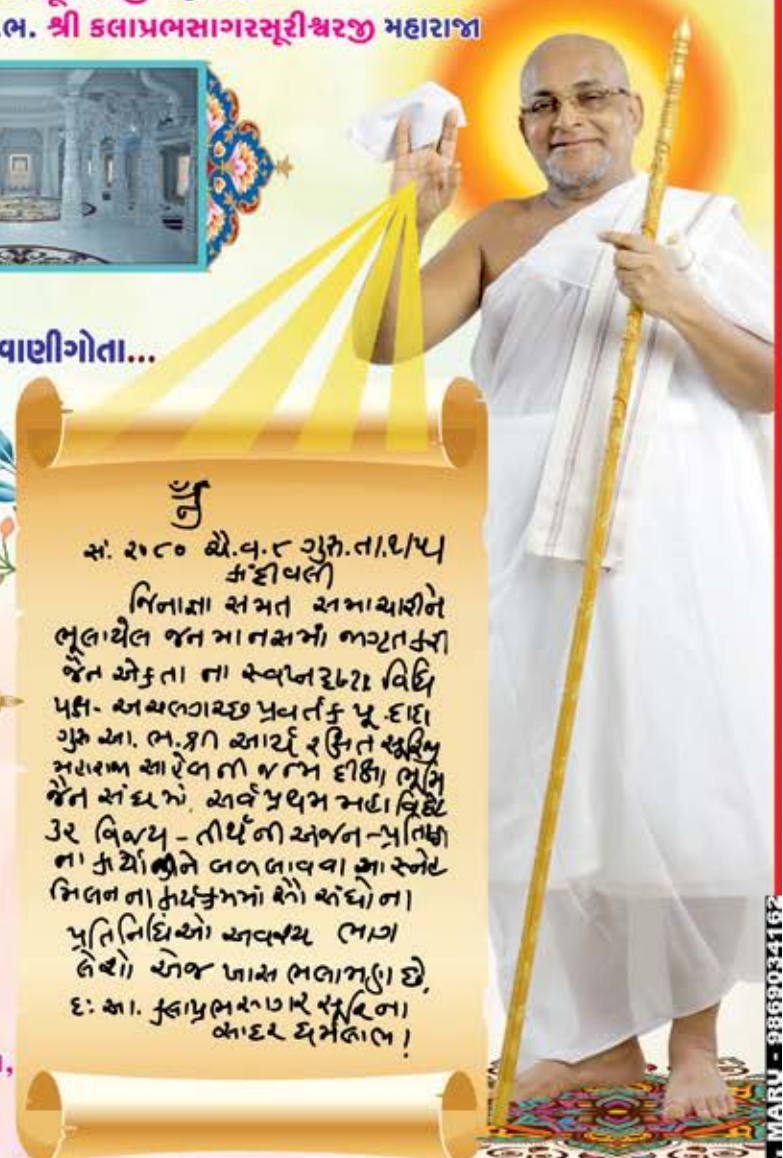 .ભ. શ્રી કલાપ્રભસાગરસૂરીશ્વરજી મહારાજા
વાણીગોતા...
ૐ
સં. ૨૦૮૦ ચૈ.વ.૮ ગુરુ.તા.૨/૫/
કાંદીવલી
જિનાજ્ઞા સંમત સમાચારીને
ભૂલાયેલ જન માનસમાં જાગૃત કરી
જૈન એકતા ના સ્વપ્ન દૃષ્ટા વિધિ
પક્ષ- અચલગચ્છ પ્રવર્તક પૂ. દાદા
ગુરુ આ. ભ. શ્રી આર્ય રક્ષિત સૂરિજી
મહારાજા સાહેબ ની જન્મ દીક્ષા ભૂમિ
જૈન સંઘ માં. સર્વ પ્રથમ મહા વિદેહ
૩૨ વિજય - તીર્થ ની અંજન - પ્રતિષ્ઠા
ના કાર્યોને આ સ્નેહ
મિલન ના કાર્યક્રમમાં સૌ સંઘો ના
પ્રતિનિધિઓ અવશ્ય ભાગ
લેશો એજ ખાસ ભલામણ છે.
દ: આ. કલાપ્રભસાગર સૂરિ ના
સાદર ધર્મલાભ !
MARU - 9869034162